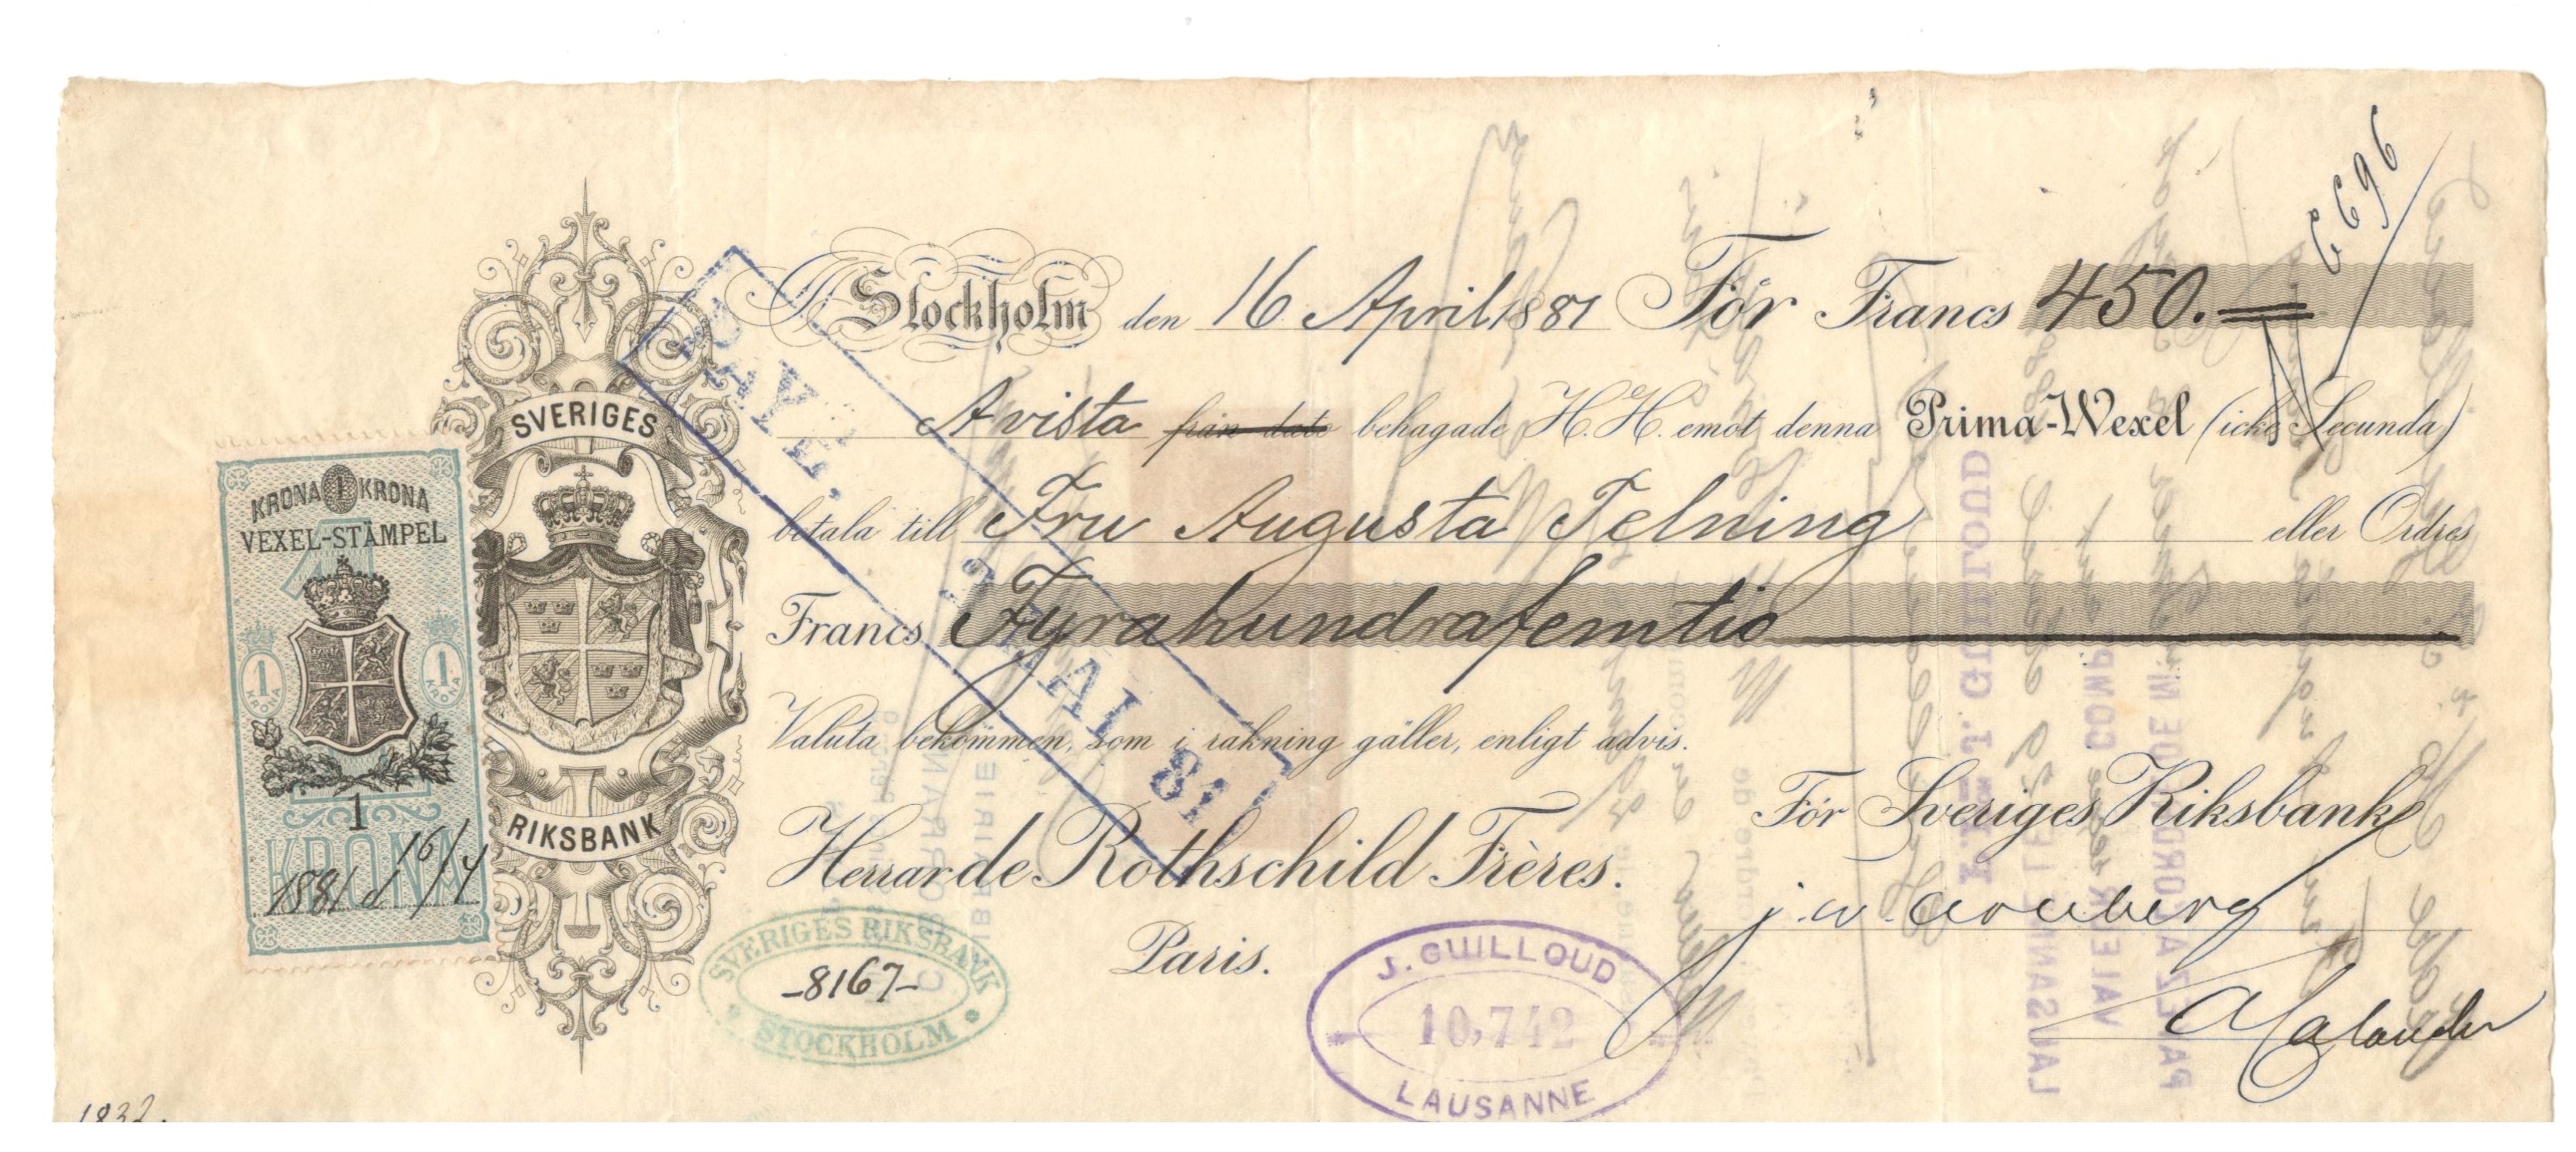 6696
Stockholm den 16 April 1881 För Francs 450.=
Avista från dato behagade H.H. emot denna Prima-Wexel (icke Secunda)
betala till Fru Augusta Telning eller Ordres
Francs Fyrahundrafemtio
Valuta bekommen, som i räkning gäller, enligt advis.
För Sveriges Riksbank
Herrar de Rothschild Frères.
Paris.
SVERIGES
RIKSBANK
KRONA 1 KRONA
VEXEL-STÄMPEL
1
KRONA
1
KRONA
1
KRONA
1881 d 16/4
PAYÉ.
MAI 81
SVERIGES RIKSBANK
-8167-
STOCKHOLM
J. GUILLOUD
10,742
LAUSANNE
1832.